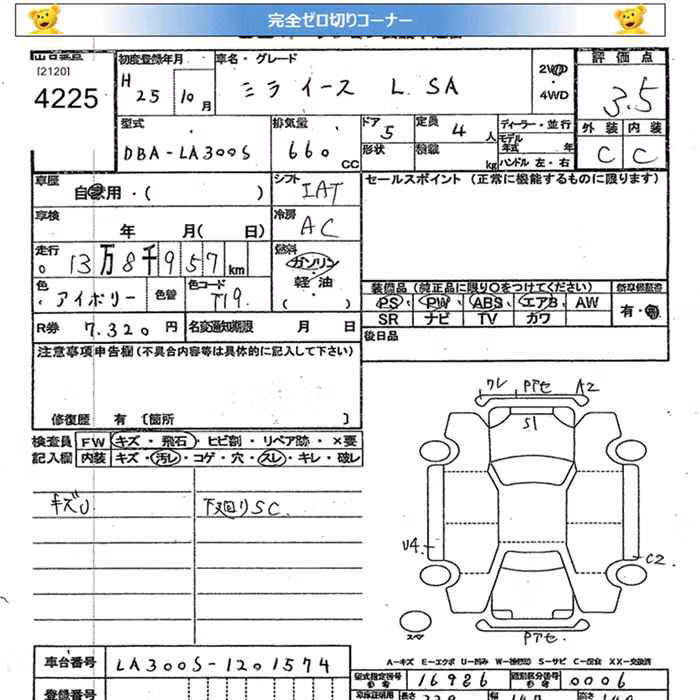 完全ゼロ切りコーナー
[2120]
4225
初度登録年月
H 25 10月
車名・グレード
ミライース L SA
2WD
4WD
評価点
3.5
外装 内装
C C
型式
DBA-LA300S
排気量
660 CC
ドア 5
形状
定員 4人
積載 kg
ディーラー・並行
モデル年式 年式
ハンドル 左・右
車歴
自家用・( )
シフト
IAT
セールスポイント (正常に機能するものに限ります)
車検
年 月( 日)
冷房
AC
走行
13万8千957km
燃料
ガソリン
軽・油
( )
色
アイボリー
色替
色コード
T19
装備品 (純正品に限り○をつけてください)
PS PW ABS エアB AW
SR ナビ TV カワ
有・無
R券 7.320円
名変通知期限 月 日
後日品
注意事項申告欄(不具合内容等は具体的に記入して下さい)
修復歴 有 〔箇所 〕
検査員記入欄
FW キズ・飛石・ヒビ割・リペア跡・×要
内装 キズ・汚レ・コゲ・穴・スレ・キレ・破レ
キズU
下廻りSC
ワレ Pアセ A2
S1
U4
C2
スペ
Pアセ
A-キズ E-エクボ U-凹み W-補修跡 S-サビ C-腐食 XX-交換済
車台番号
LA300S-1201574
型式指定番号
16926
類別区分番号
0006
登録番号
長さ
幅
高さ